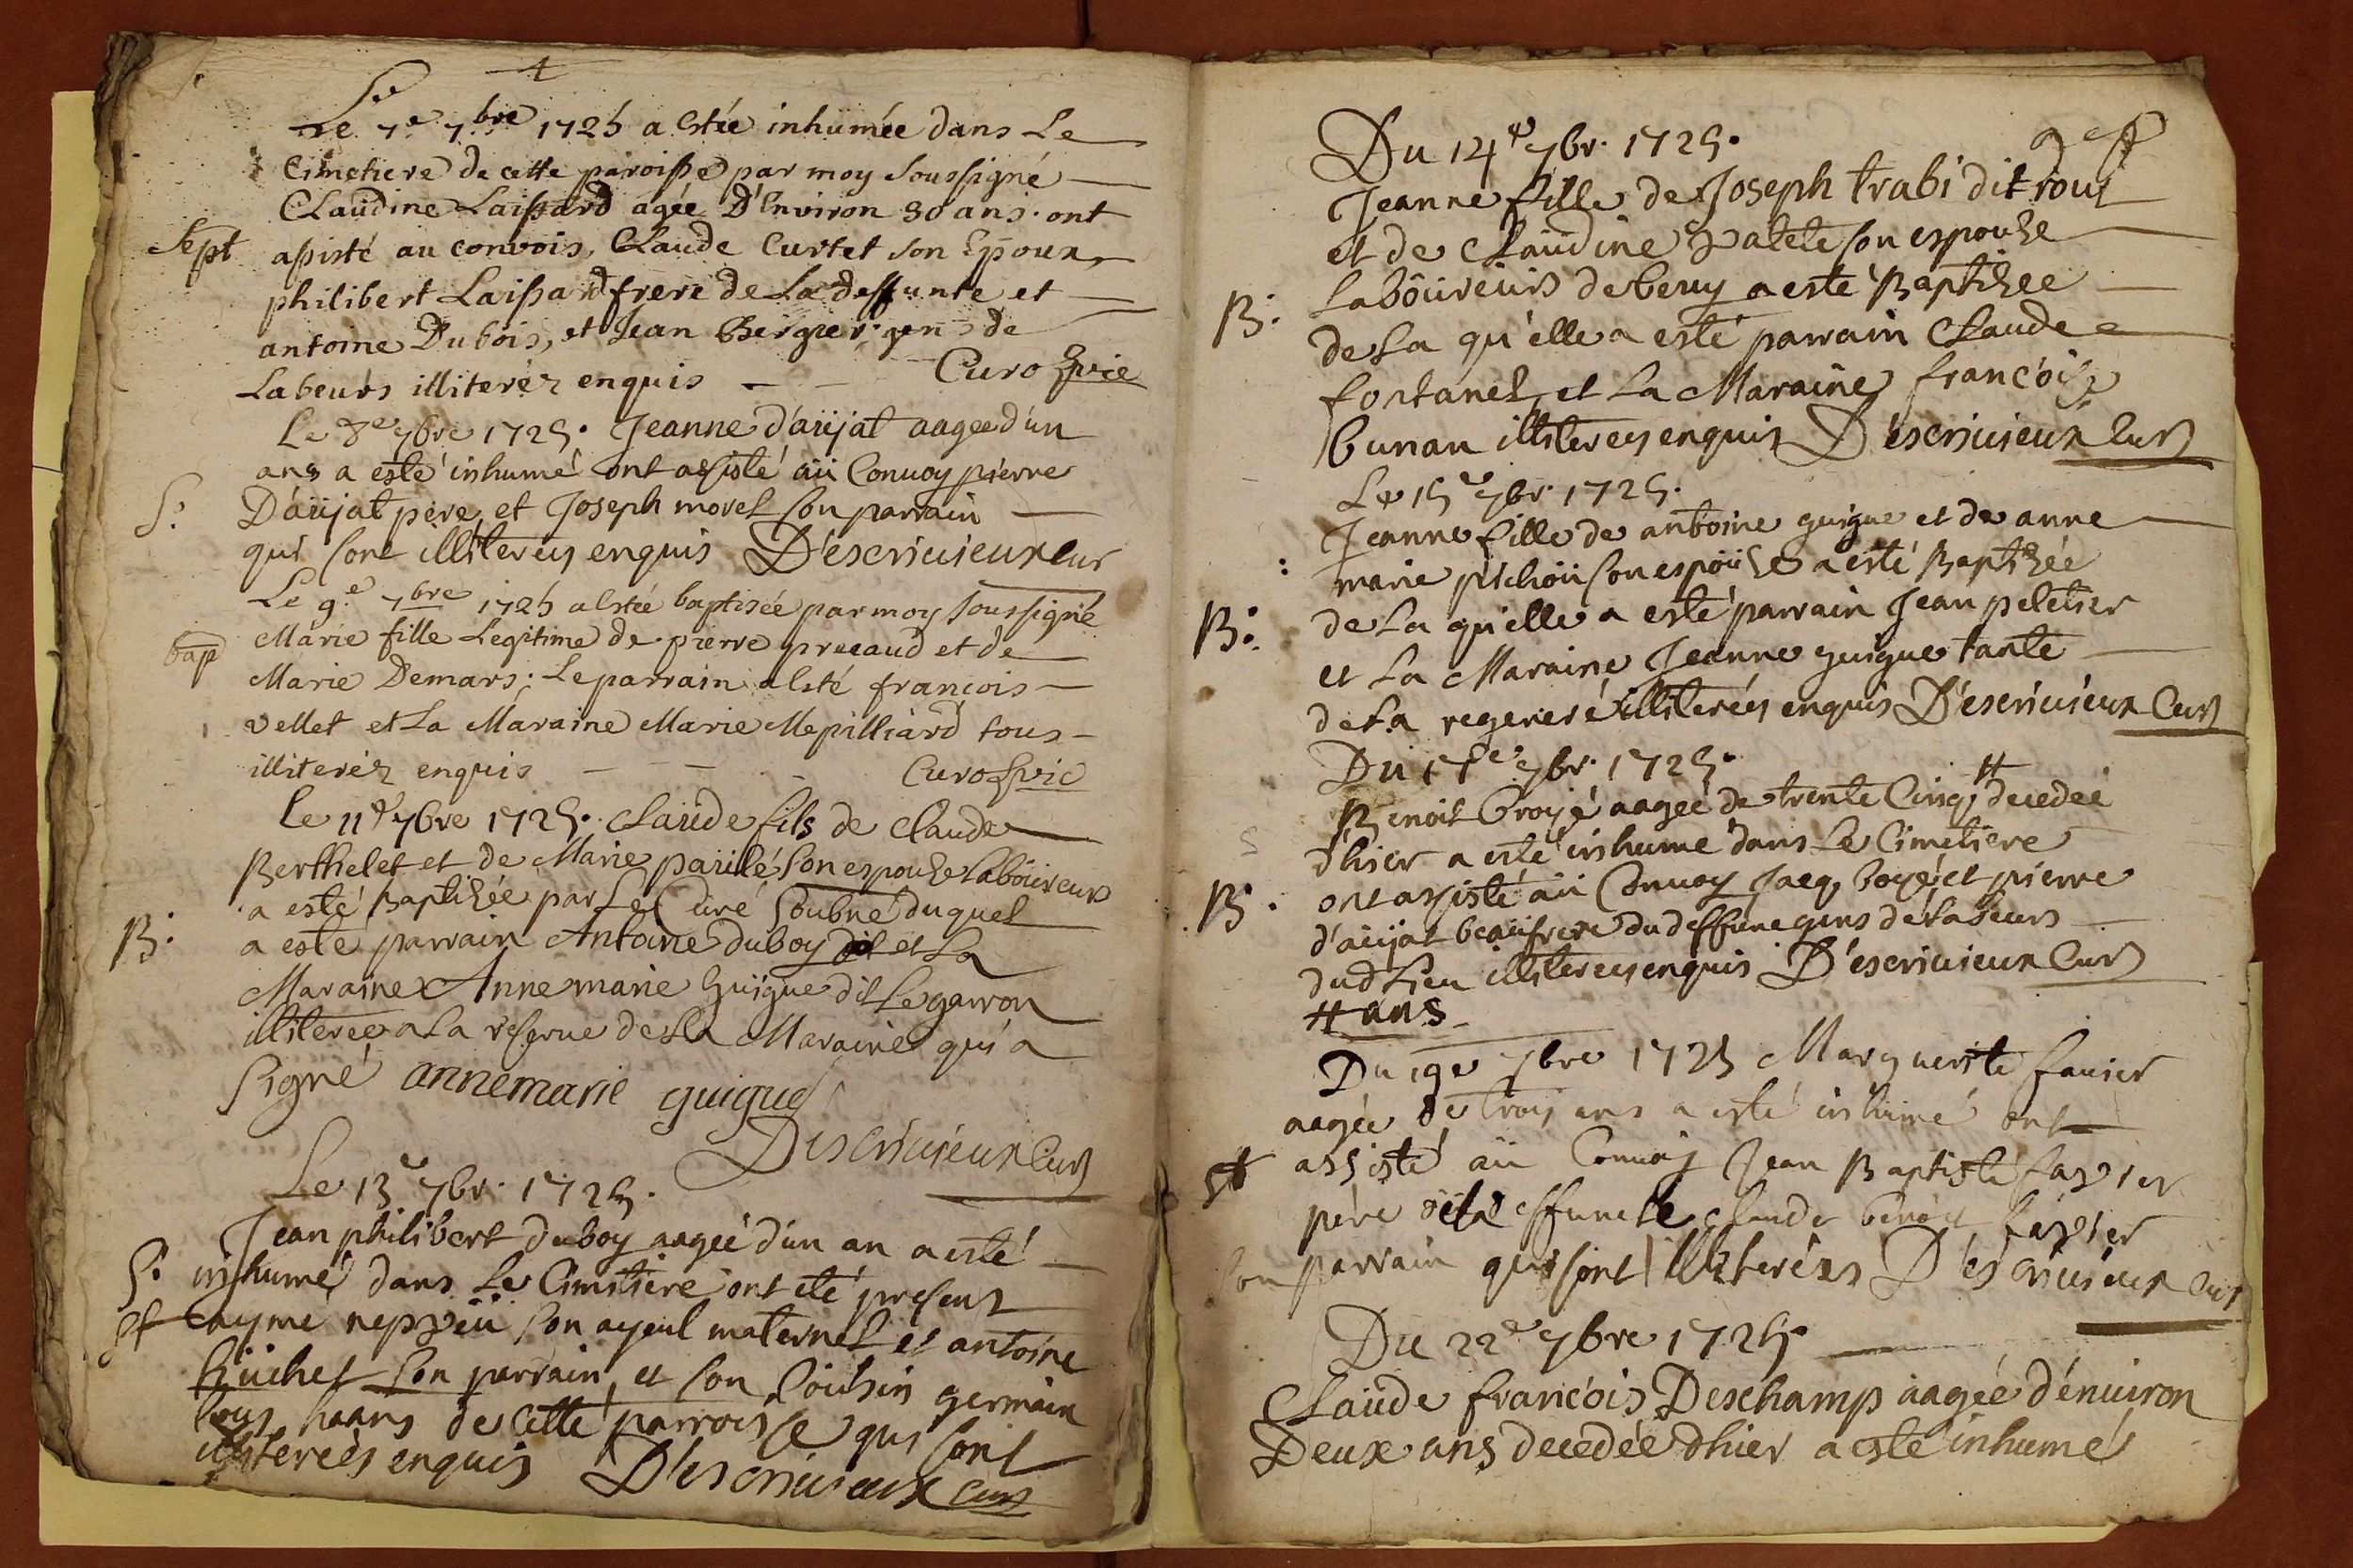 Le 7e 7bre 1725 a Estée inhumée dans Le
Cimetiere de cette paroisse par moy Soussigné
CLaudine Laissard agée D'Environ 30 ans. ont
Sept assisté au convois, CLaude Curtet son Epoux,
philibert Laissard frere de La deffunte et
antoine Dubois, et Jean Bergier gens de
Labeurs illiteréz enquis Curo
Le 8e 7bre 1725. Jeanne d'aüjat aagee d'un
ans a esté inhumé ont assisté aü Convoy pierre
S. D'aüjat pere, et Joseph morel son parrain
qui sont illiterez enquis D'escrivieux Cur
Le 9e 7bre 1725 a Estée baptisée par moy soussigné
bap Marie fille Legitime de pierre precaud et de
Marie Demars; Le parrain a Esté françois
vellet et La Maraine Marie Mepilliard tous
illiteréz enquis Curo
Le 11e 7bre 1725. Claüde fils de Claude
Berthelet et de Marie paüilé son espouze Laboüreurs
a esté Baptizée par Le Curé Soubné duquel
B. a esté parrain Antoine duboy et La
Maraine Anne marie Guigue dit Le garron
illiteree a La reserve de La Maraine qui a
signé annemarie guigue
Descrivieux Cur
Le 13e 7br. 1725.
Jean philibert duboy aageé d'un an a esté
S. inhumé dans Le Cimitiere ont eté presens
Eaymé nepveü son ayeul maternel et antoine
son parrain, et son Coühin germain
tous de Cette parroisse qui sont
illitereés enquis D'escrivieux Cur
Du 14e 7br. 1725.
Jeanne fille de Joseph trabi dit roux
et de CLaüdine Patete son espouze
B. Laboüreurs de beny a esté Baptizee
de La qu'elle a esté parrain CLaude
fontanel, et La Maraine françoise
Bunan illiterez enquis D'escrivieux Cur
Le 15e 7br. 1725.
Jeanne fille de antoine guigue et de anne
marie pichoü son espoüze a esté Baptizée
B. de La qu'elle a esté parrain Jean peletier
et La Maraine Jeanne guigue tante
de La regeneré illiterées enquis D'escrivieux Cur
Du 17e 7br. 1725.
Benoit Croyé aageé de trente Cinq # decedeé
d'hier a esté inhumé dans Le Cimetiere
B. ont assisté aü Convoy Jacq. boyé et pierre
d'aüjat beaüfrere du deffunt gens de Labeurs
dud Lieu illiterez enquis D'escrivieux Cur
# ans
Du 19e 7bre 1725 Marguerite favier
aagée de trois ans a esté inhumé ont
assisté aü Convoy Jean Baptiste favier
pere de la deffuncte Claude benoit favier
son parrain qui sont illiterées D'escrivieux Cur
Du 22e 7bre 1725.
CLaüde françois Deschamp aageé d'environ
Deux ans decedée d'hier a esté inhumé